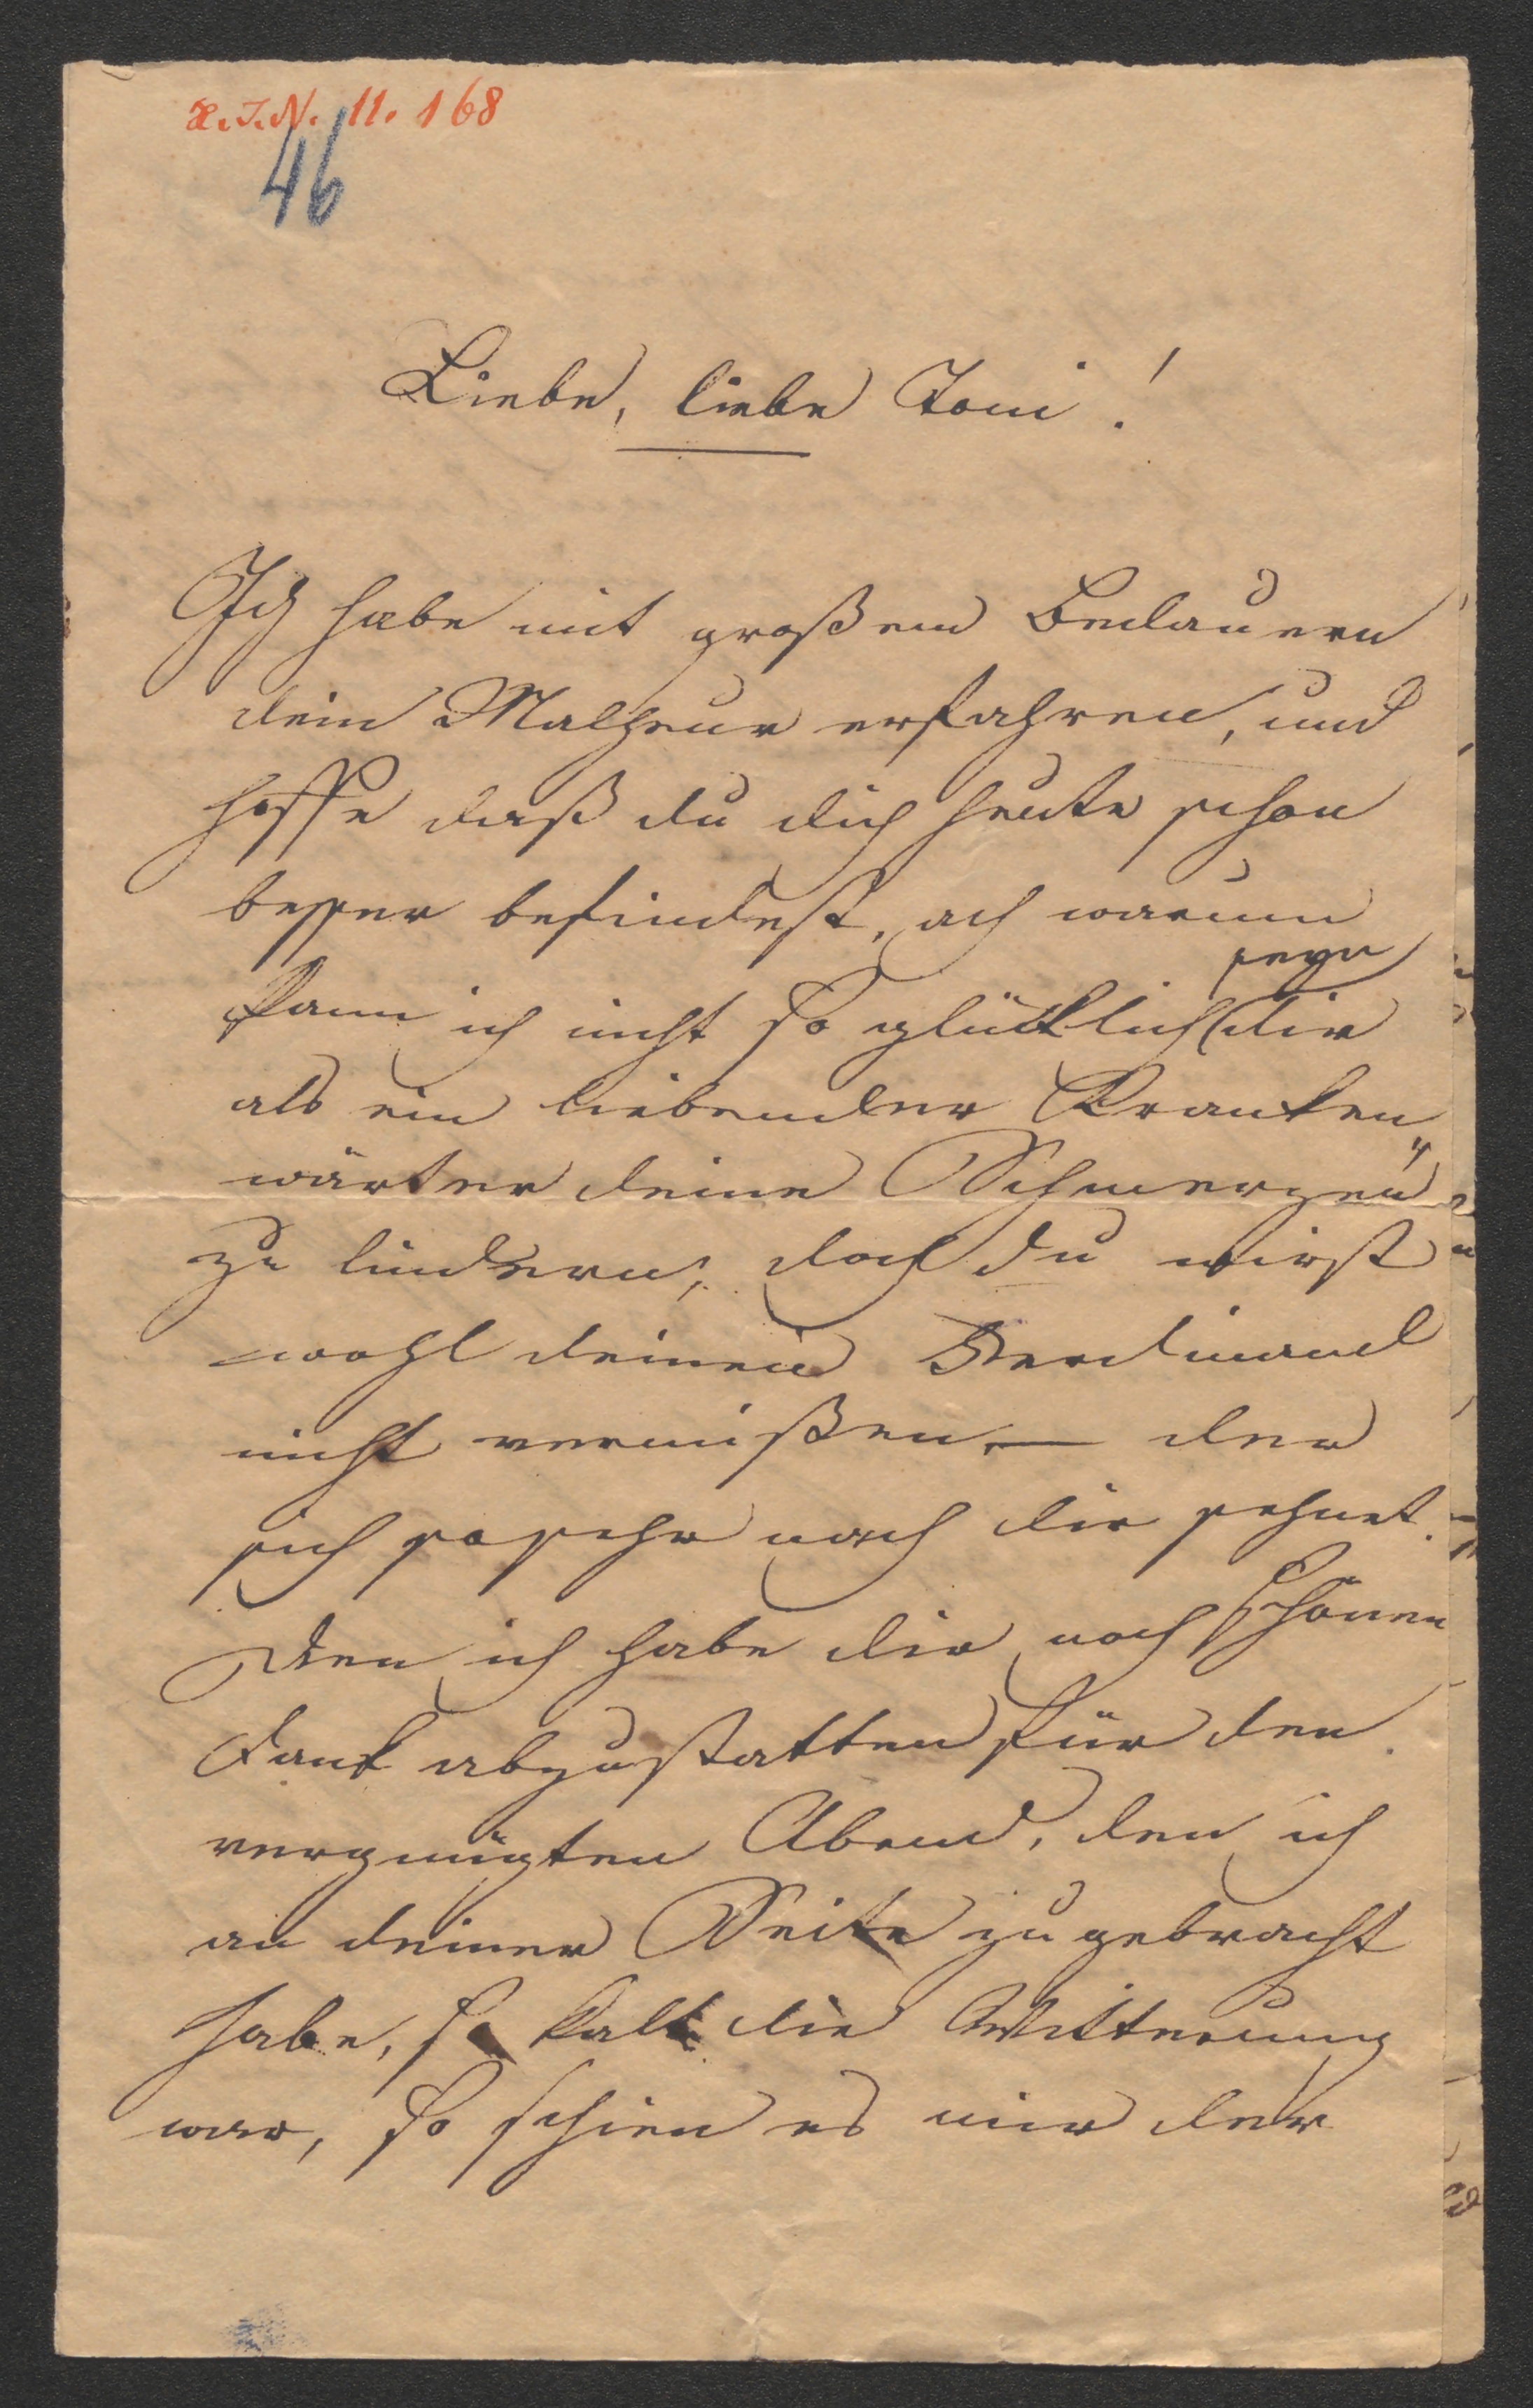 H.I.N. 11.168
46
Liebe, liebe Toni!
Ich habe mit großem Bedauern
dein Malheur erfahren, und
hoffe daß du dich heute schon
besser befindest, ach warum
seyn
kann ich nicht so glücklich dir
als ein liebender Kranken
wärter deine Schmerzen
zu lindern, doch du wirst
wohl deinen Ferdinand
nicht vermißen, — der
sich so sehr nach dir sehnet.
Den ich habe dir noch schönen
Dank abzustatten für den
vergnügten Abend, den ich
an deiner Seite zugebracht
habe, so kalt die Witterung
war, so schien es mir der